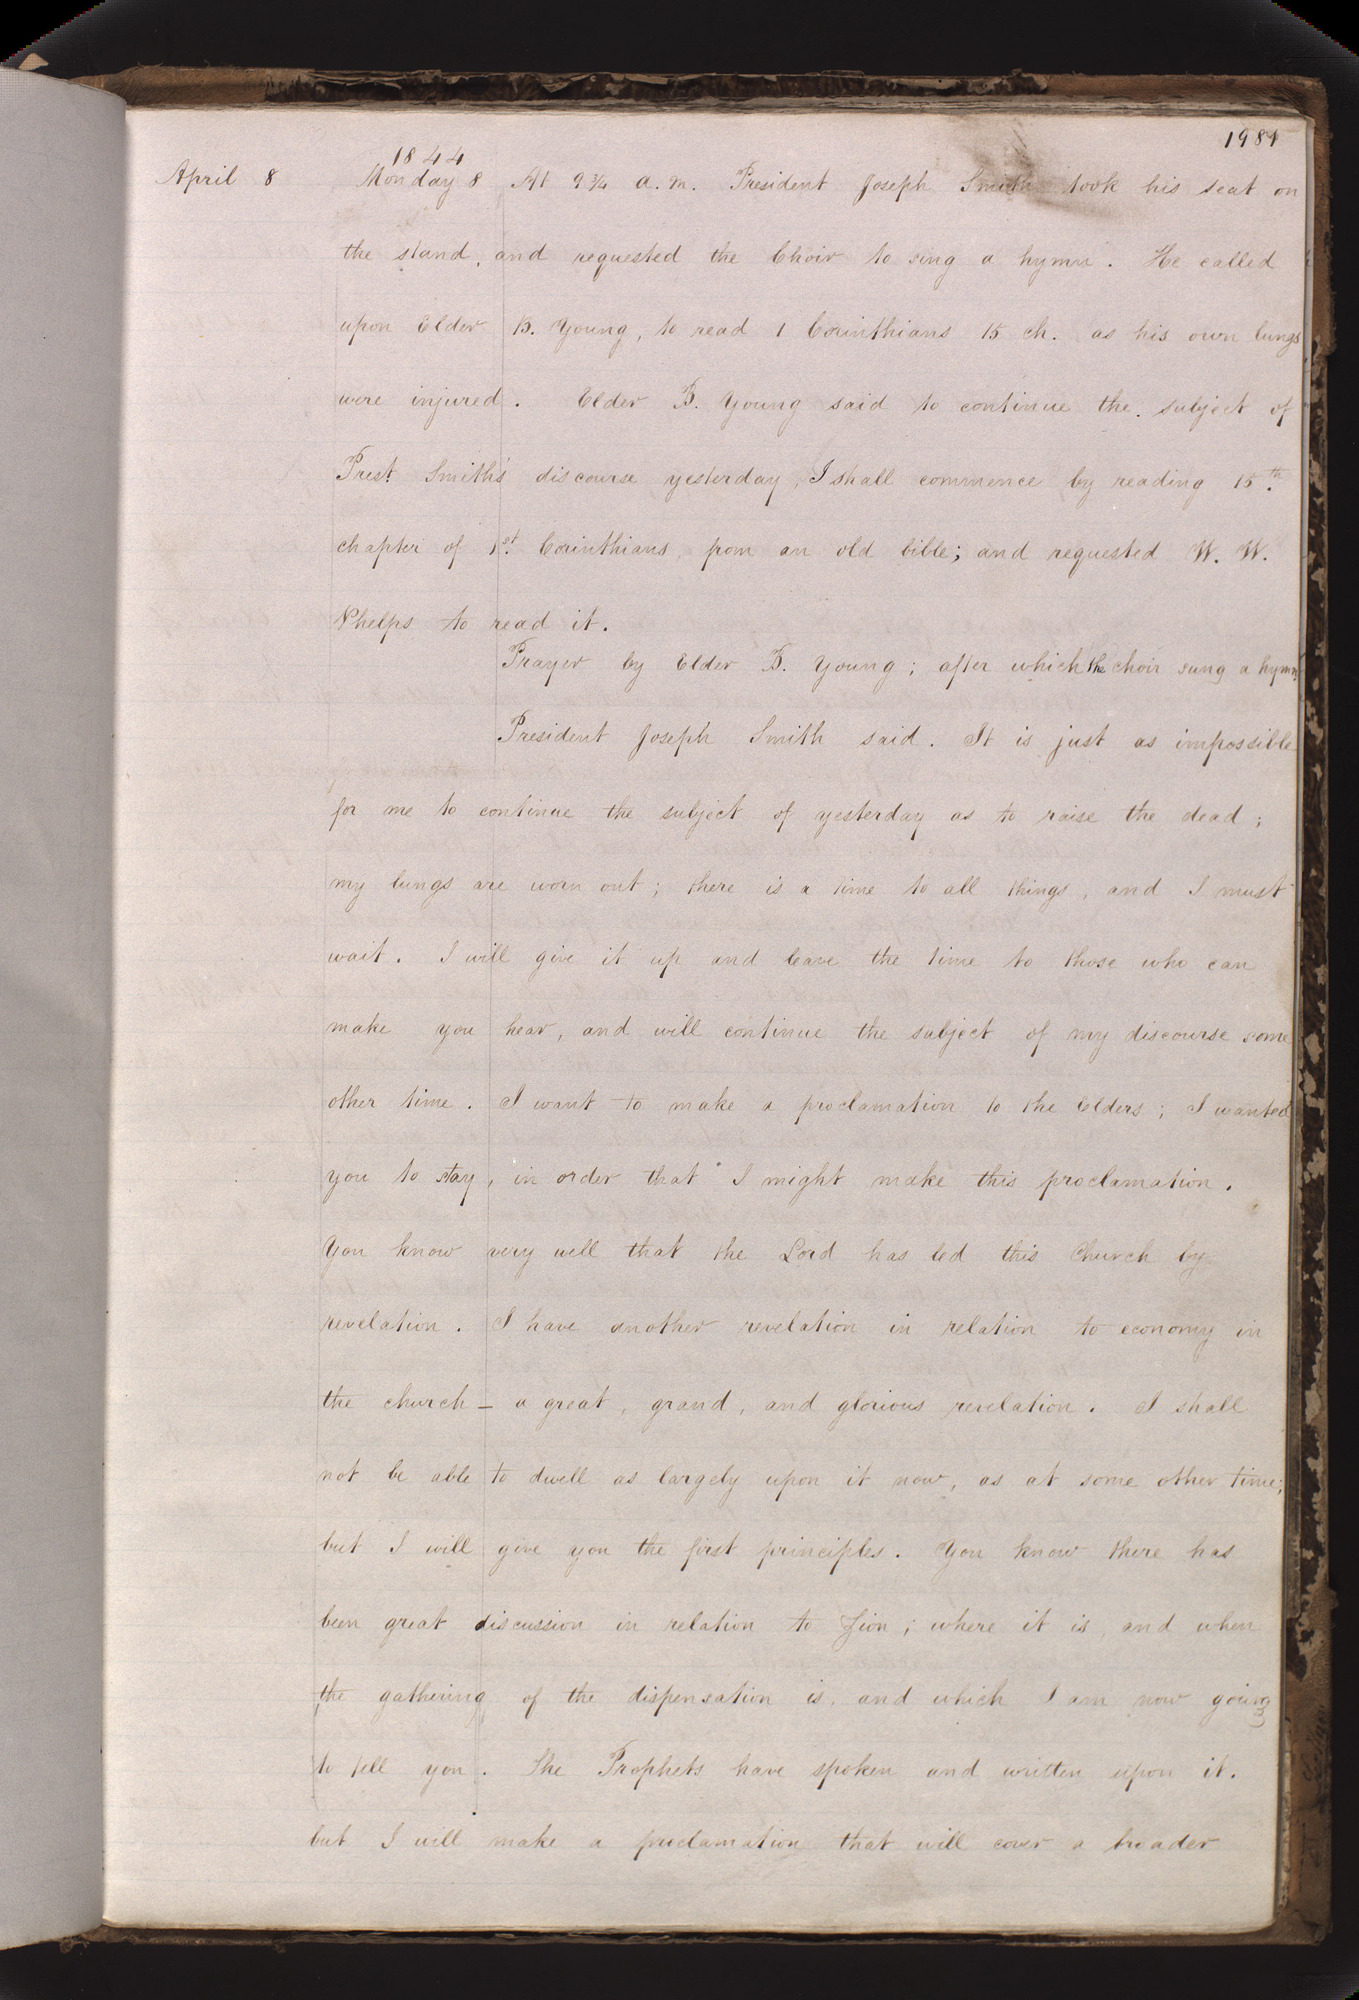 1981
1844
April 8 Monday 8 At 9 3/4 a.m. President Joseph Smith took his seat on
the stand, and requested the Choir to sing a hymn. He called
upon Elder B. Young, to read 1 Corinthians 15 ch. as his own lungs
were injured. Elder B. Young said to continue the subject of
Prest. Smith's discourse yesterday, I shall commence by reading 15th.
chapter of 1st. Corinthians, from an old bible; and requested W. W.
Phelps to read it.
Prayer by Elder B. Young; after which the choir sung a hymn
President Joseph Smith said. It is just as impossible
for me to continue the subject of yesterday as to raise the dead;
my lungs are worn out; there is a time to all things, and I must
wait. I will give it up and leave the time to those who can
make you hear, and will continue the subject of my discourse some
other time. I want to make a proclamation to the Elders; I wanted
you to stay, in order that I might make this proclamation.
You know very well that the Lord has led this Church by
revelation. I have another revelation in relation to economy in
the church - a great, grand, and glorious revelation. I shall
not be able to dwell as largely upon it now, as at some other time;
but I will give you the first principles. You know there has
been great discussion in relation to Zion; where it is, and when
the gathering of the dispensation is, and which I am now going
to tell you. The Prophets have spoken and written upon it.
but I will make a proclamation that will cover a broader